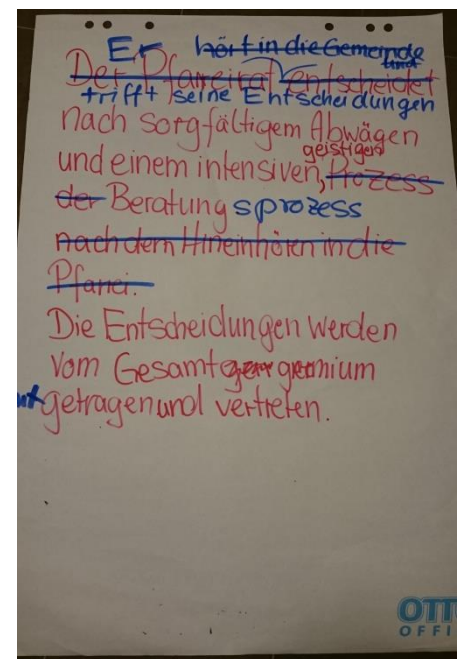 Er hört in die Gemeinde
und
Der Pfarreirat entscheidet
trifft seine Entscheidungen
nach sorgfältigem Abwägen
geistigen
und einem intensiven, Prozess
der Beratung sprozess
nach dem Hineinhören in die
Pfarrei.
Die Entscheidungen werden
vom Gesamt gremium
getragen und vertreten.
OTTO
OFFI